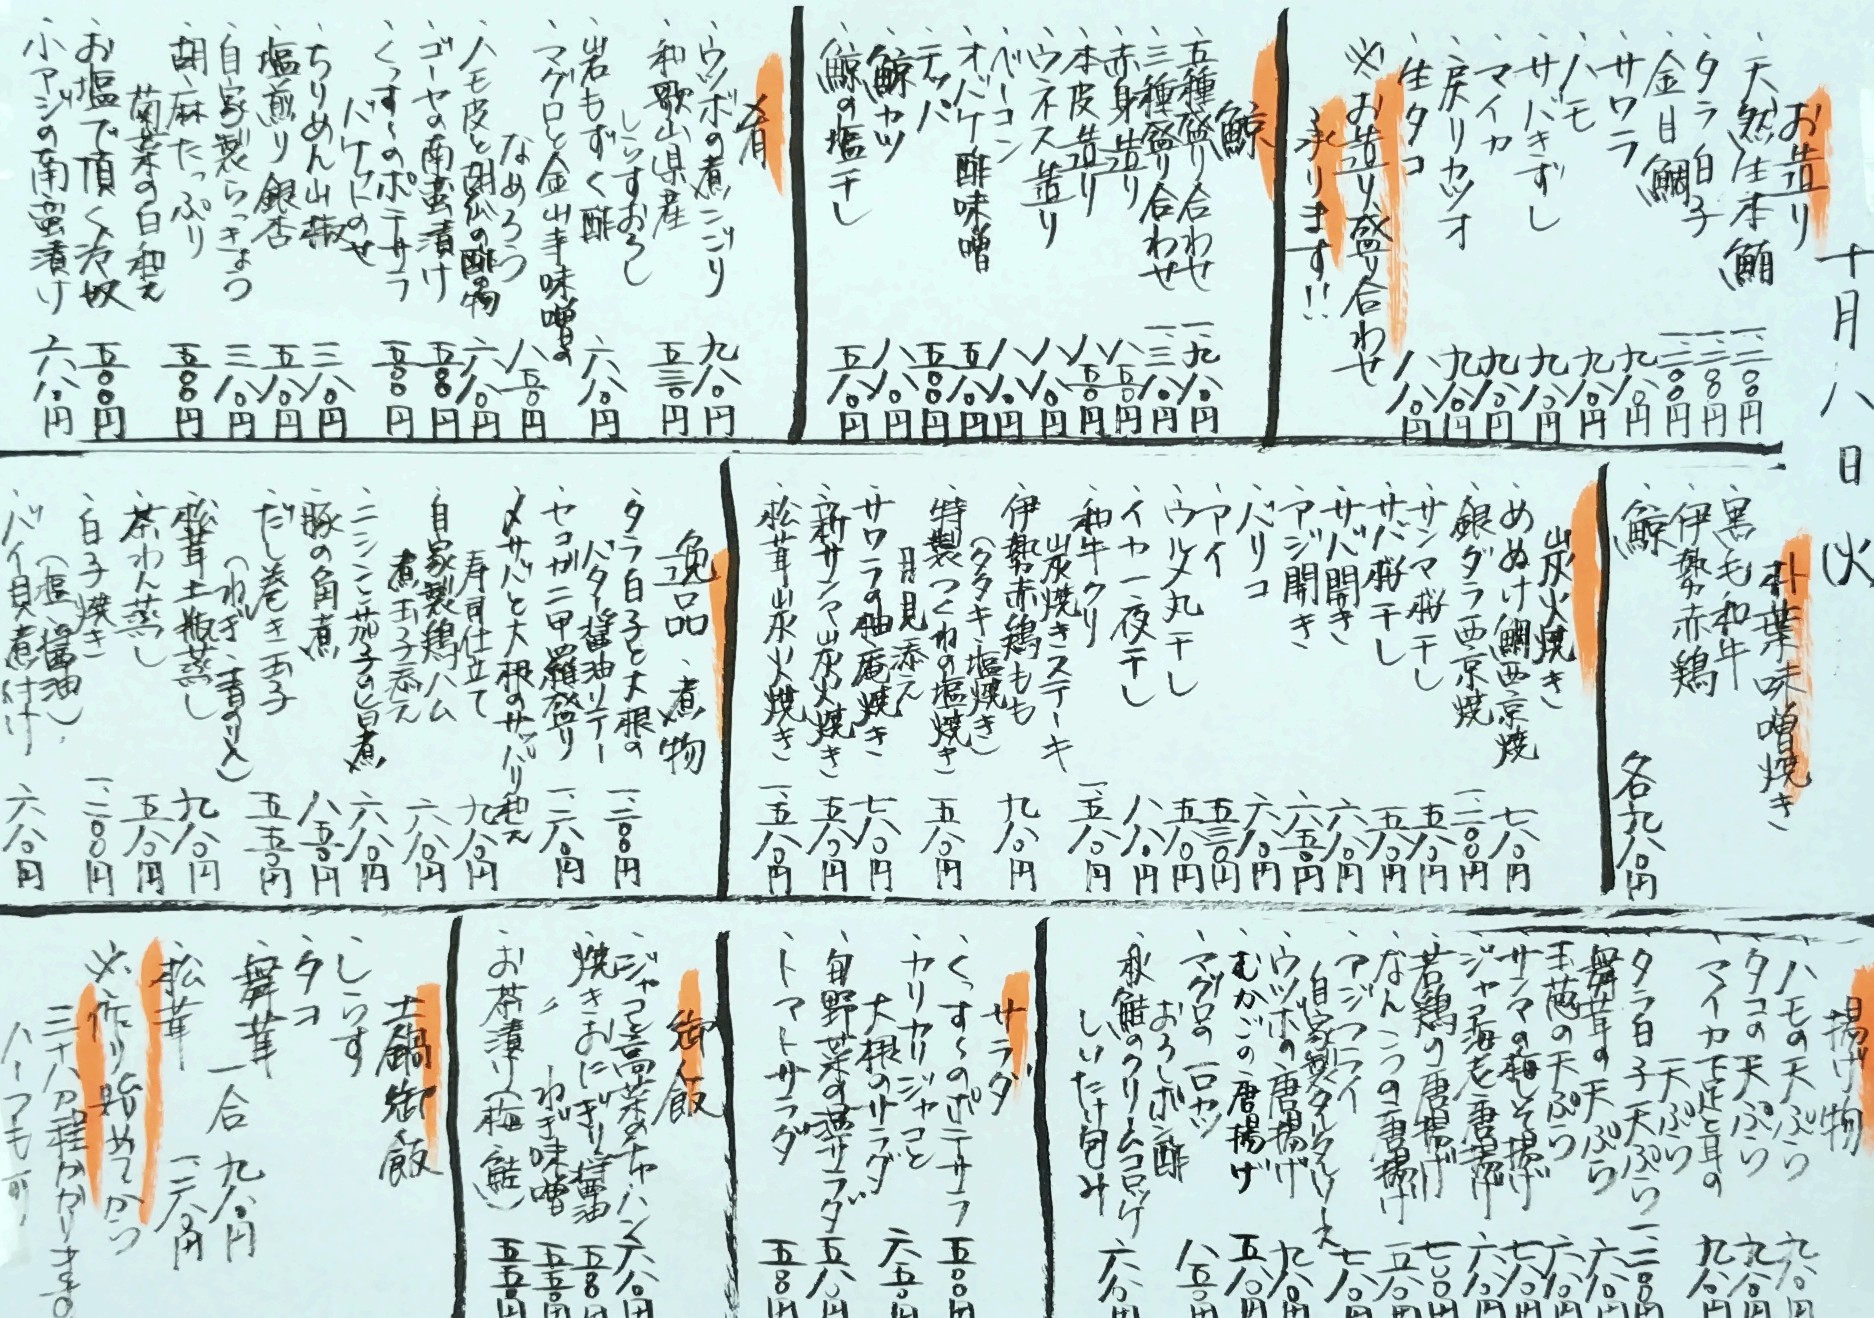 十月八日 火
お造り
、天然生本鮪 一、二〇〇円
、タラ白子 一、二〇〇円
、金目鯛 一、二〇〇円
、サワラ 九八〇円
、ハモ 九八〇円
、サバきずし 九八〇円
、マイカ 九八〇円
、戻りカツオ 九八〇円
、生タコ 八八〇円
※お造り盛り合わせ
承ります!!
鯨
、五種盛り合わせ 一、九八〇円
、三種盛り合わせ 一、三八〇円
、赤身造り 八五〇円
、本皮造り 八五〇円
、ウネス造り 八八〇円
、ベーコン 八八〇円
、オバケ酢味噌 五八〇円
、テッパ 五〇〇円
、鯨カツ 八八〇円
、鯨の塩干し 五八〇円
肴
、ウツボの煮こごり 九八〇円
、和歌山県産
しらすおろし 五三〇円
、岩もずく酢 六八〇円
、マグロと金山寺味噌の
なめろう 八五〇円
、ハモ皮と胡瓜の酢の物 六八〇円
、ゴーヤの南蛮漬け 五〇〇円
、くっす〜のポテサラ
バケットのせ 五〇〇円
、ちりめん山椒 三八〇円
、塩煎り銀杏 五八〇円
、自家製らっきょう 三八〇円
、胡麻たっぷり
菊菜の白和え 五〇〇円
、お塩で頂く冷奴 五〇〇円
、小アジの南蛮漬け 六八〇円
朴葉味噌焼き
、黒毛和牛
、伊勢赤鶏
、鯨
各九八〇円
炭火焼き
、めぬけ鯛西京焼 七八〇円
、銀ダラ西京焼 一、二〇〇円
、サンマ桜干し 五八〇円
、サバ桜干し 五八〇円
、サバ開き 六八〇円
、アジ開き 六五〇円
、バリコ 六八〇円
、アイ 五三〇円
、ウルメ丸干し 五八〇円
、イカ一夜干し 八八〇円
、和牛クリ
炭焼きステーキ 一、五八〇円
、伊勢赤鶏もも
(タタキ・塩焼き) 九八〇円
、特製つくねの塩焼き
月見添え 五八〇円
、サワラの柚庵焼き 七八〇円
、新サンマ炭火焼き 五八〇円
、松茸炭火焼き 一、五八〇円
逸品、煮物
、タラ白子と大根の
バター醤油ソテー 一、二〇〇円
、セコガニ甲羅盛り 一、二八〇円
、〆サバと大根のサッパリ和え
寿司仕立て 九八〇円
、自家製鶏ハム
煮玉子添え 六八〇円
、ニシンと茄子の旨煮 六八〇円
、豚の角煮 八五〇円
、だし巻き玉子
(ねぎ、青のり入) 五五〇円
、松茸土瓶蒸し 九八〇円
、茶わん蒸し 五八〇円
、白子焼き
(塩、醤油) 一、二〇〇円
、バイ貝煮付け 六八〇円
揚げ物
、ハモの天ぷら 九八〇円
、タコの天ぷら 九八〇円
、マイカ下足と耳の
天ぷら 九八〇円
、タラ白子天ぷら 一、二〇〇円
、舞茸の天ぷら 六八〇円
、玉葱の天ぷら 六八〇円
、サンマの梅しそ揚げ 七八〇円
、ジャコ海老唐揚げ 六八〇円
、若鶏の唐揚げ 七〇〇円
、なんこつの唐揚げ 五八〇円
、アジフライ
自家製タルタルソース 七八〇円
、ウツボの唐揚げ 九八〇円
、むかごの唐揚げ 五八〇円
、マグロの一口カツ
おろしポン酢 八五〇円
、秋鮭のクリームコロッケ
しいたけ包み 六八〇円
サラダ
、くっす〜のポテサラ 五〇〇円
、カリカリジャコと
大根のサラダ 六五〇円
、旬野菜の温サラダ 五八〇円
、トマトサラダ 五〇〇円
御飯
、ジャコと高菜のチャーハン 六八〇円
、焼きおにぎり醤油 五〇〇円
、〃 ねぎ味噌 五五〇円
、お茶漬け(梅、鮭) 五五〇円
土鍋御飯
、しらす
、タコ
、舞茸 一合 九八〇円
、松茸 一、二八〇円
※作り始めてから
三十八分程かかります
ハーフも可